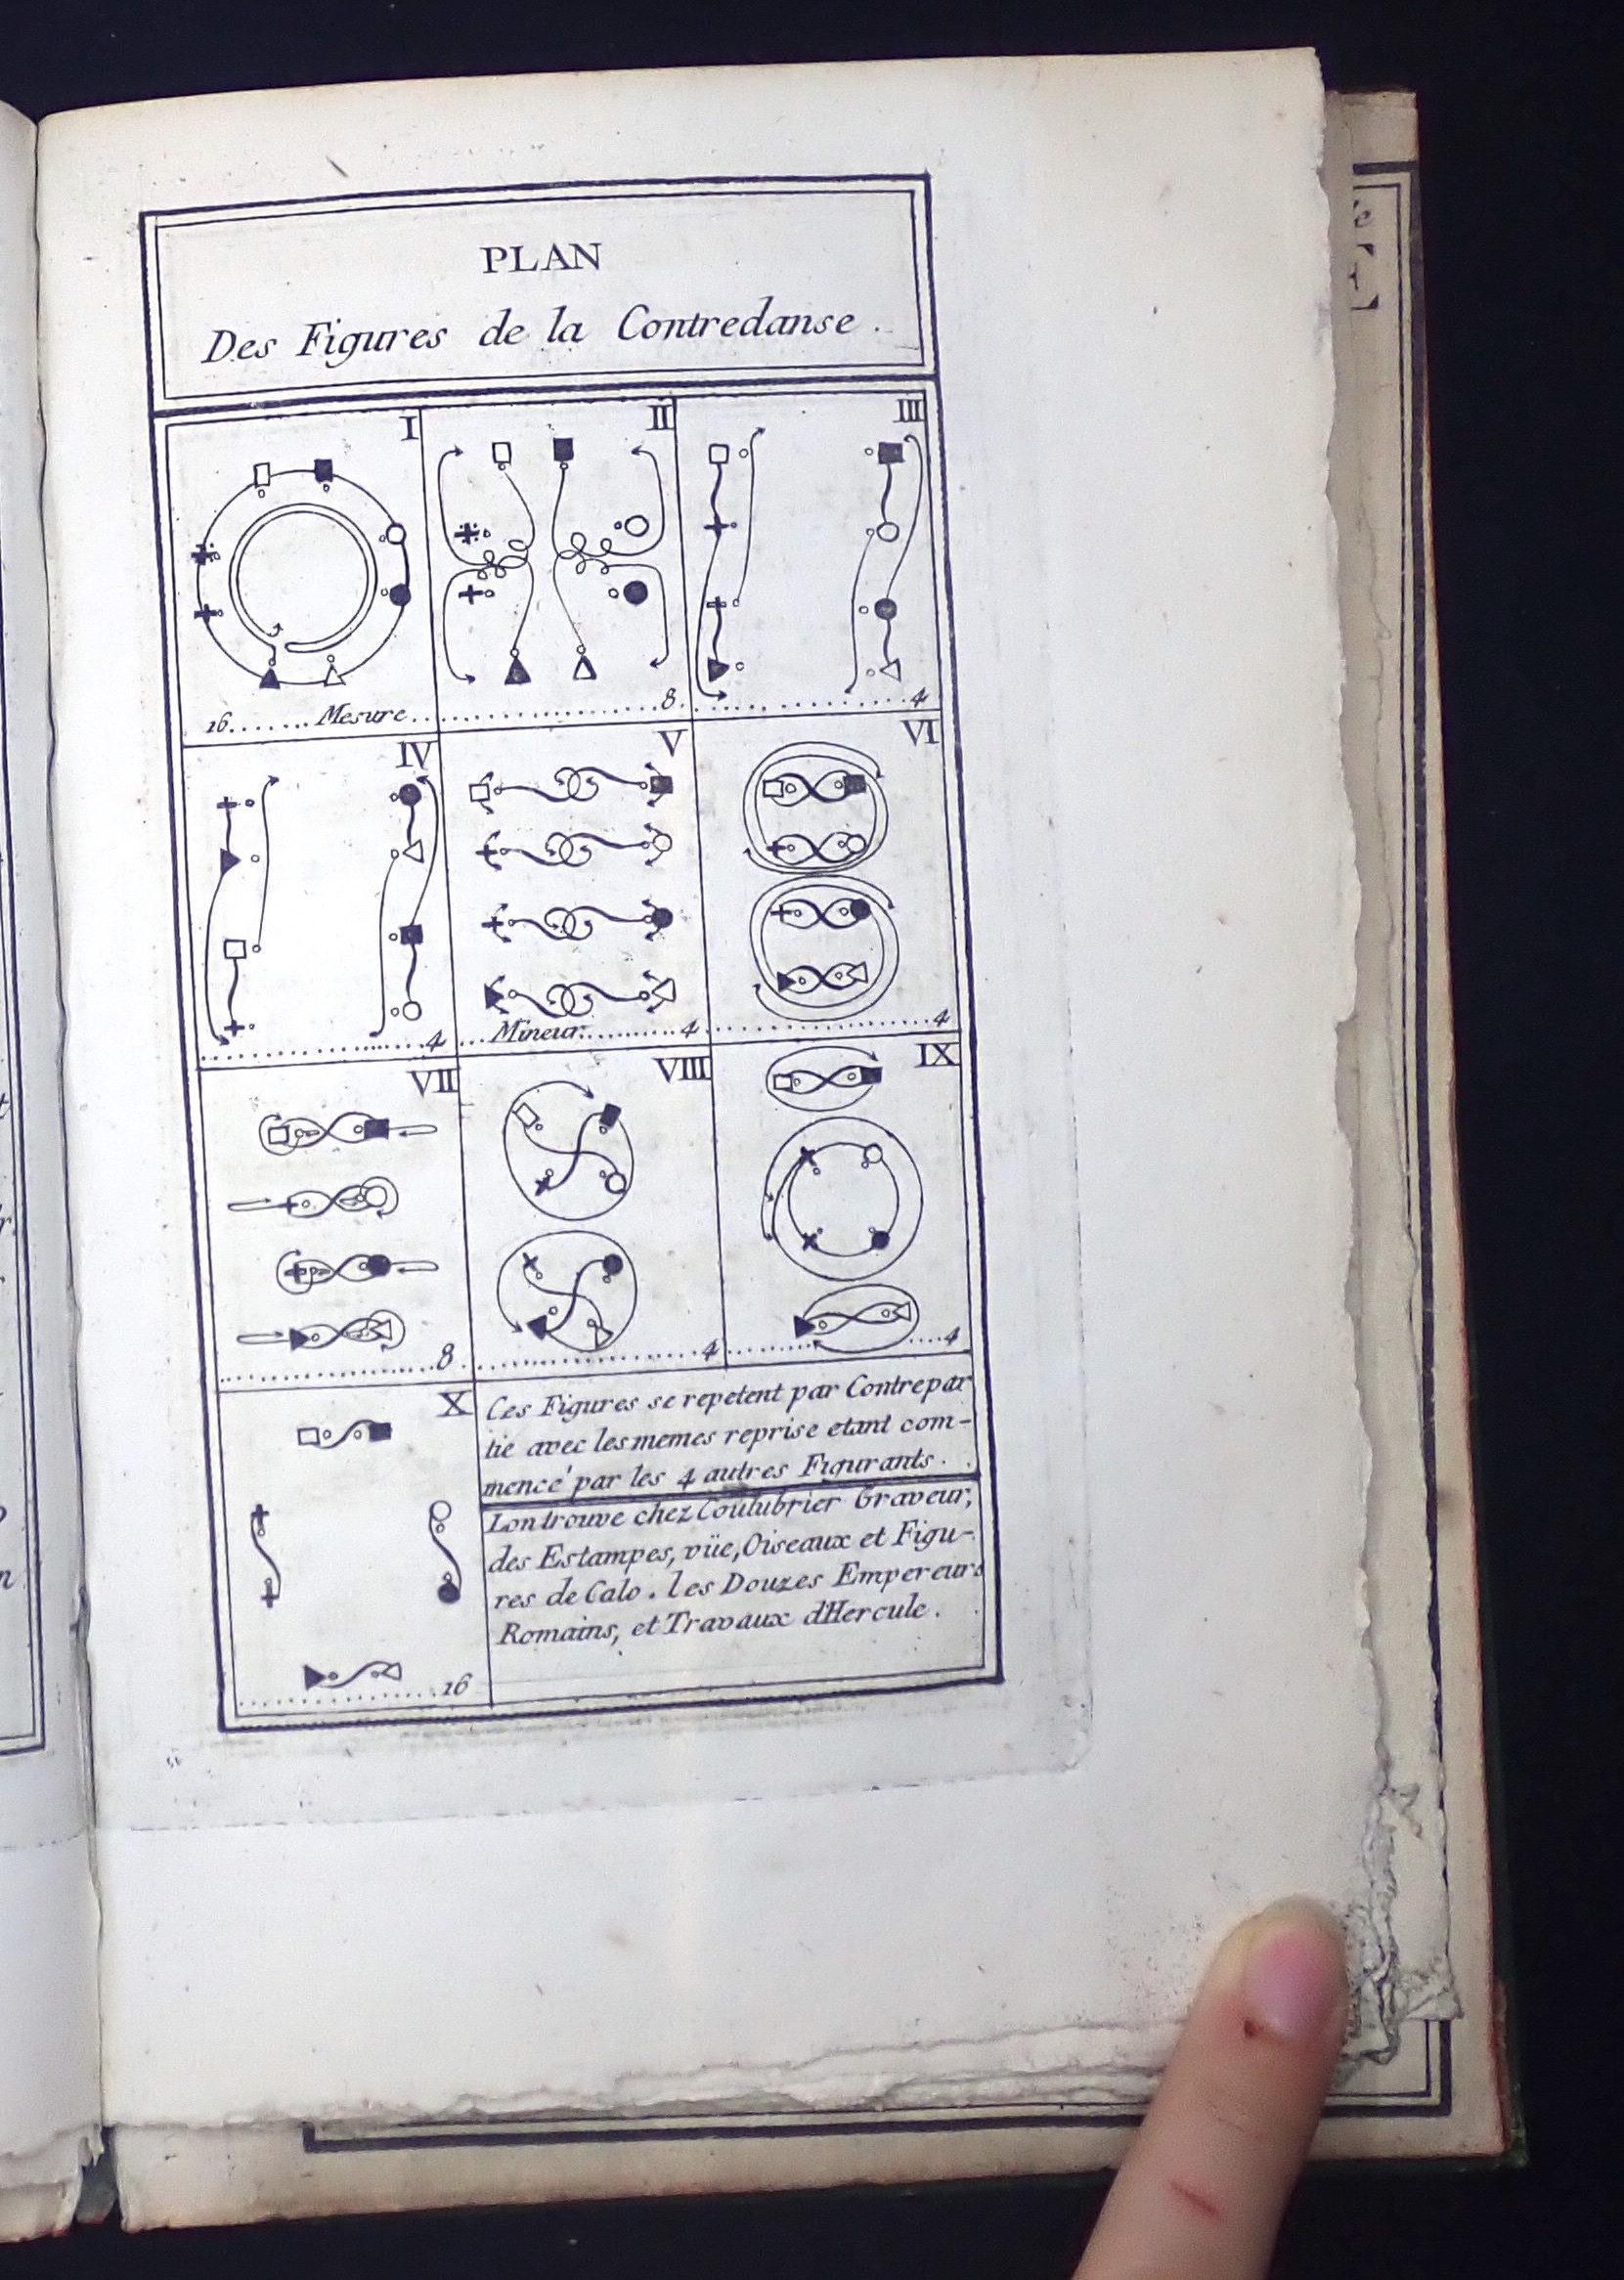 PLAN
Des Figures de la Contredanse.
I
II
III
16....... Mesure.......................8
.............4
IV
V
VI
...............4
...Mineur..........4
................4
VII
VIII
IX
.................8
.................4
....4
X
Ces Figures se repetent par Contrepar
tie avec les memes reprise etant com-
mencé par les 4 autres Figurants.
Lon trouve chez Coulubrier Graveur,
des Estampes, vüe, Oiseaux et Figu-
res de Calo. les Douzes Empereurs
Romains, et Travaux dHercule.
..............16